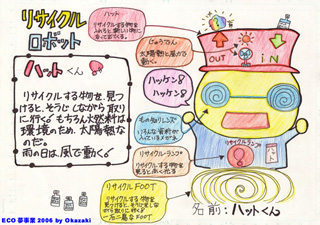 リサイクル
ロボット
ハットくん
リサイクルする物を見つ
けると、そうじしながら取りに
行く。もちろん燃料は
環境のため、太陽熱な
のだ。
雨の日は、風で動く。
ハット
リサイクルする物を
じゅうでん
太陽熱と風力で
動く。
OUT
IN
ハッケン8
ハッケン8
ものしりレンズ
いろんな資料が
入っている
リサイクルランプ
リサイクルする物を
見つけると光る
リサイクルFOOT
リサイクルする物を
一石二鳥なFOOT
名前:ハットくん
ECO 夢事業 2006 by Okazaki